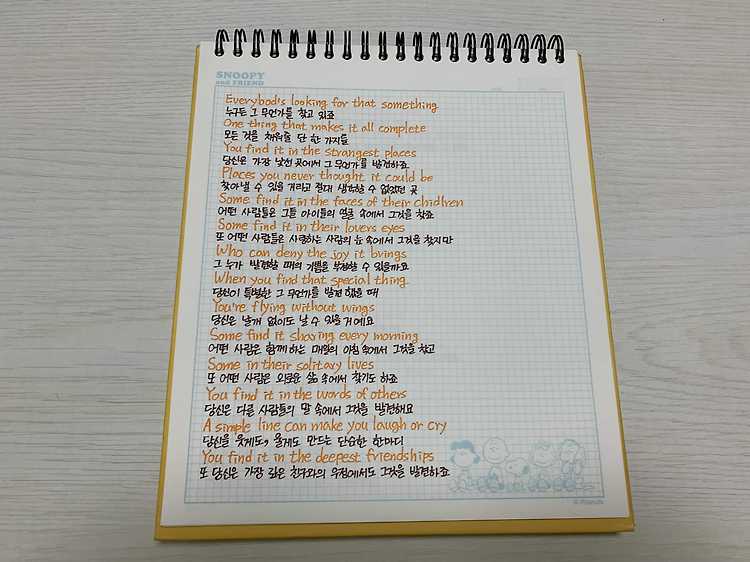 SNOOPY
and FRIEND
Everybody's looking for that something
누구든 그 무언가를 찾고 있죠
One thing that makes it all complete
모든 것을 채워줄 단 한 가지를
You find it in the strangest places
당신은 가장 낯선 곳에서 그 무언가를 발견하죠
Places you never thought it could be
찾아낼 수 있을 거라고 절대 생각할 수 없었던 곳
Some find it in the faces of their children
어떤 사람들은 그들 아이들의 얼굴 속에서 그것을 찾죠
Some find it in their lovers eyes
또 어떤 사람들은 사랑하는 사람의 눈 속에서 그것을 찾지만
Who can deny the joy it brings
그 누가 발견할 때의 기쁨을 부정할 수 있을까요
When you find that special thing
당신이 특별한 그 무언가를 발견 했을 때
You're flying without wings
당신은 날개 없이도 날 수 있을 거예요
Some find it sharing every morning
어떤 사람은 함께 하는 매일의 아침 속에서 그것을 찾고
Some in their solitary lives
또 어떤 사람은 외로운 삶 속에서 찾기도 하죠
You find it in the words of others
당신은 다른 사람들의 말 속에서 그것을 발견해요
A simple line can make you laugh or cry
당신을 웃게도, 울게도 만드는 단순한 한마디
You find it in the deepest friendships
또 당신은 가장 깊은 친구와의 우정에서도 그것을 발견하죠
© Peanuts